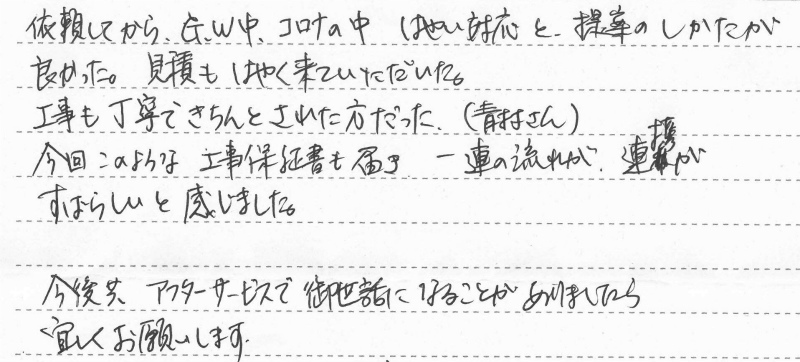 依頼してから、G.W中、コロナの中 はやい対応と、提案のしかたが
良かった。見積もはやく来ていただいた。
工事も丁寧できちんとされた方だった。(青村さん)
今回このような 工事保証書も届き 一連の流れが、連携が
すばらしいと感じました。
今後共 アフターサービスで御世話になることがありましたら
宜しくお願いします。